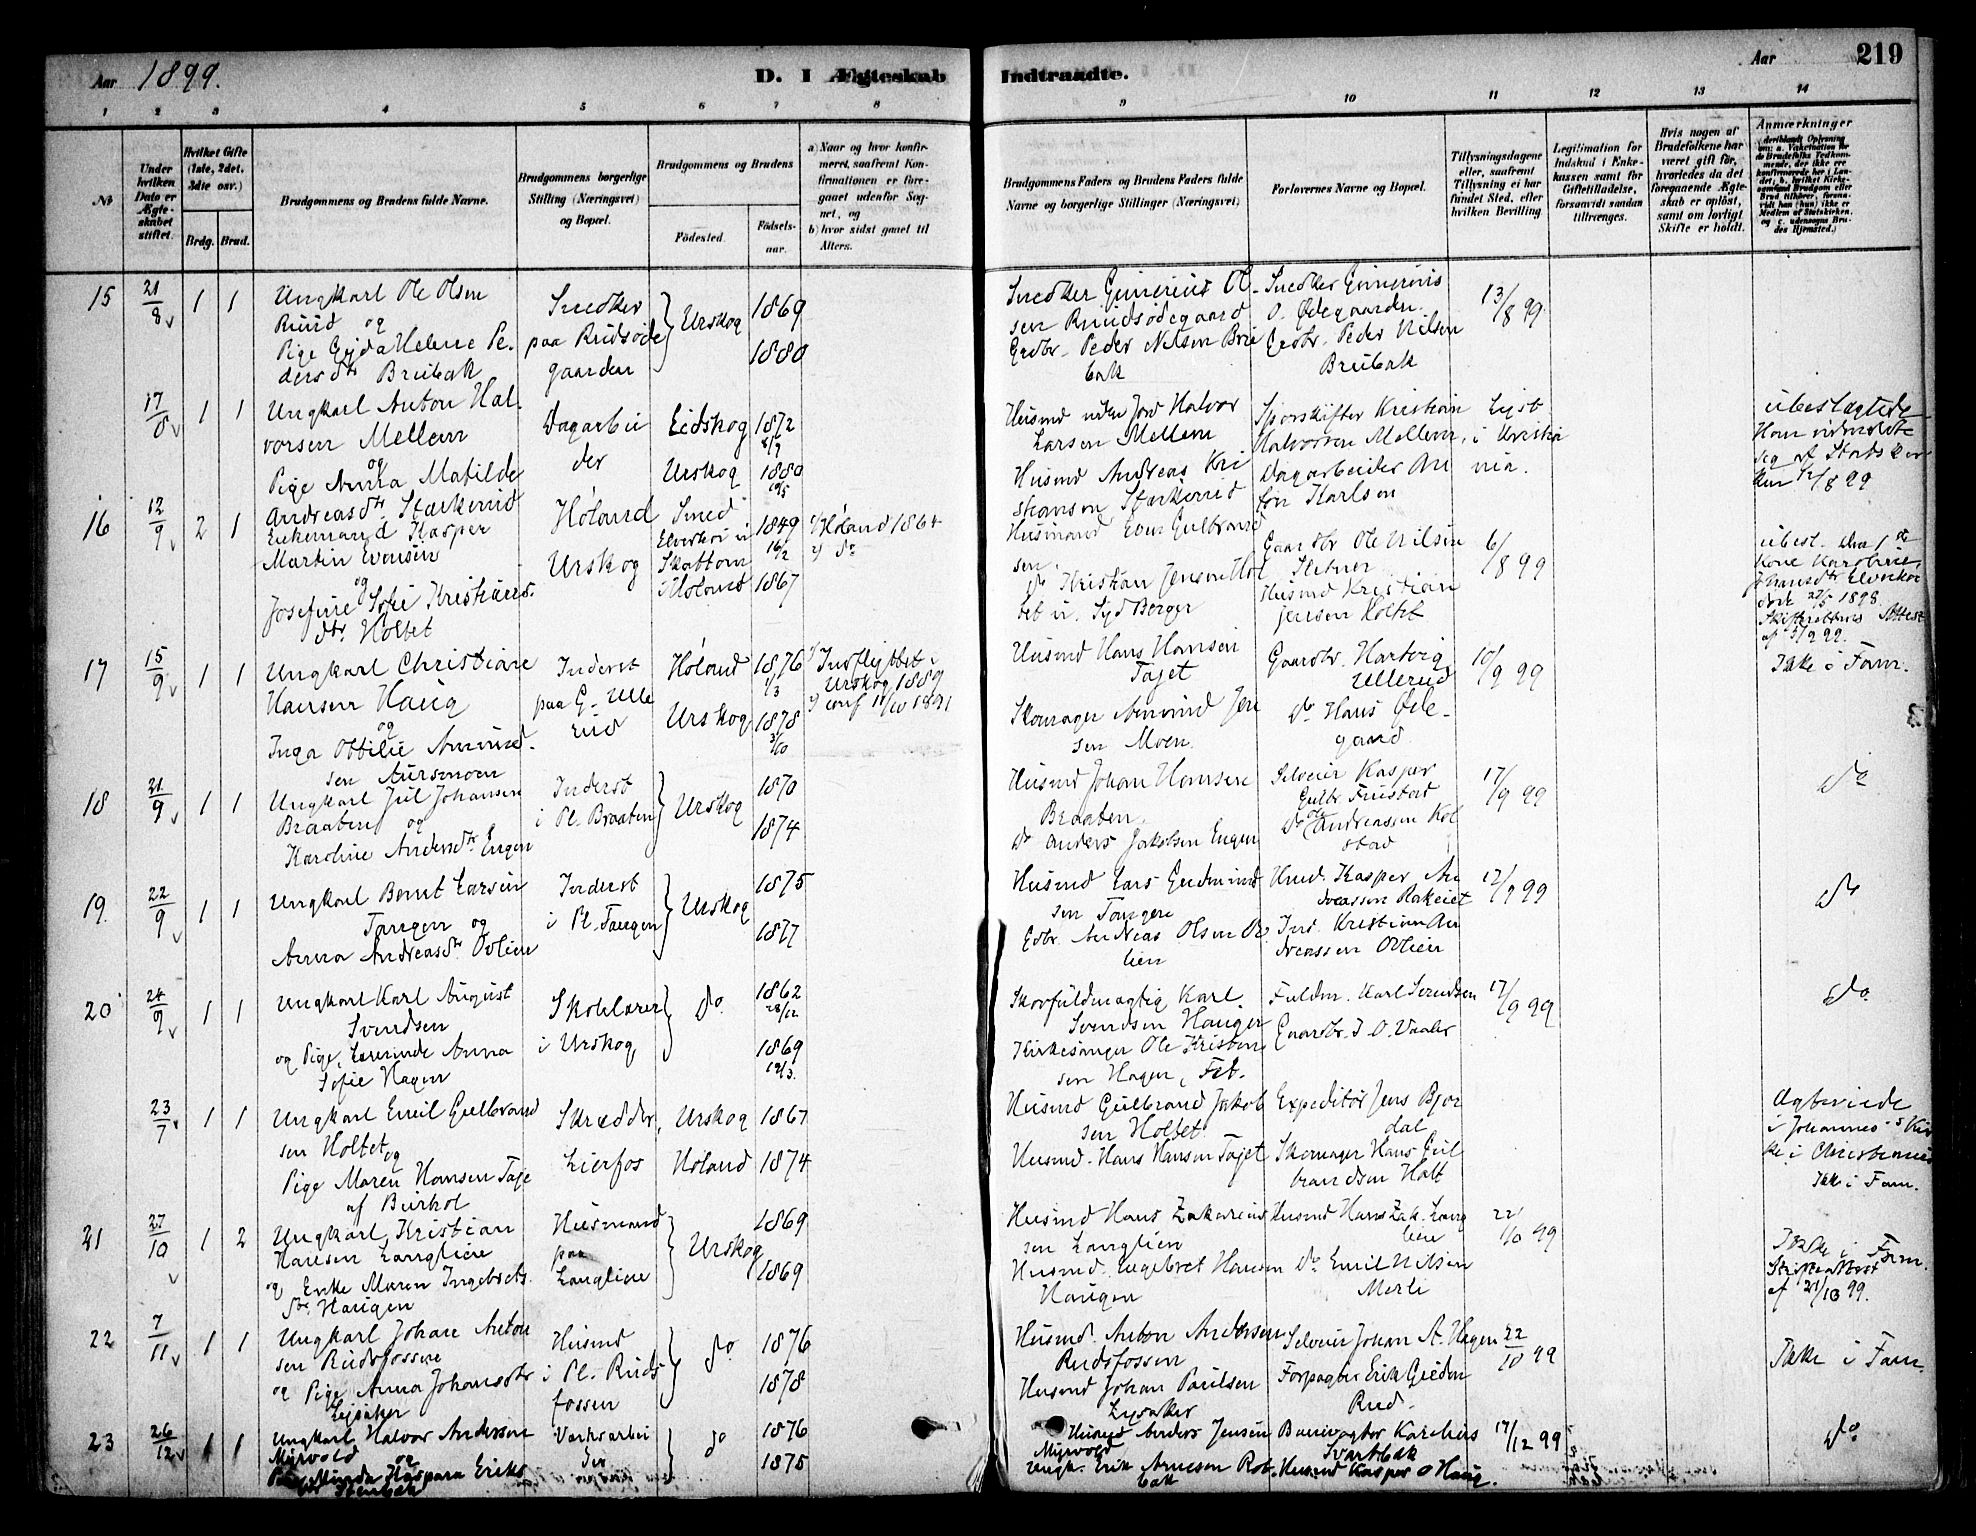 Aar 1899.
D. I Ægteskab Indtraadte.
Aar 219
1 2 3 4 5 6 7 8 9 10 11 12 13 14
No
Under hvilken Dato er Ægteskabet stiftet.
Hvilket Gifte (1ste, 2det, 3die osv.)
Brdg. Brud.
Brudgommens og Brudens fulde Navne.
Brudgommens borgerlige Stilling (Næringsvei) og Bopæl.
Brudgommens og Brudens
Fødested. Fødselsaar.
a) Naar og hvor konfirmeret, saafremt Konfirmationen er foregaaet udenfor Sognet, og
b) hvor sidst gaaet til Alters.
Brudgommens Faders og Brudens Faders fulde Navne og borgerlige Stillinger (Næringsvei)
Forlovernes Navne og Bopæl.
Tillysningsdagene eller, saafremt Tillysning ei har fundet Sted, efter hvilken Bevilling
Legitimation for Indskud i Enkekassen samt for Giftetilladelse, forsaavidt saadan tiltrænges.
Hvis nogen af Brudefolkene har været gift før, hvorledes da det foregaaende Ægteskab er opløst, samt om lovligt Skifte er holdt.
Anmærkninger
15 21/8 1 1
Ungkarl Ole Olsen
Ruud og
Pige Gyda Helene Pe-
dersdtr Brubak
Snedker
paa Rudsøde
gaarden
Urskog
1869
1880
Snedker Gunerius Ol-
sen Ruudsødegaard
Grdbr. Peder Nilsen Bru
bak
Snedker Gunerius
O. Ødegaarden
Grdbr. Peder Nilsen
Brubak
13/8 99
17/8 1 1
Ungkarl Anton Hal-
vorsen Mellem
og
Pige Anna Matilde
Andreasdtr Starkerud
Dagarbei
der
Eidskog 1872
Urskog 1880
Husmd uden Jord Halvor
Larsen Mellem
Husmd Andreas Kri
stiansen Starkerud
Sporskifter Kristian
Halvorsen Mellem,
Dagarbeider An
ton Karlsen
Lyst
i Kristia
nia.
ubeslægtede
Ham udmeldte
sig af Statskir
ken 12/8 99
16 12/9 2 1
Enkemand Kasper
Martin Evensen
og
Josefine Sofie Kristians-
dtr. Holtet
Høland
Urskog
Smed
Elverhøi i
Skattom
i Høland
1849
16/2
1867
1/ Høland 1864
2/ do
Husmand Even Gulbrand
sen.
do Kristian Jensen Hol
tet u. Syd Berger
Gaardbr Ole Nilsen
Husmd Kristian
Jensen Holtet
6/8 99
ubesl. Hans 1ste
Kone Karoline
Hansdtr Elverhøi
død 27/5 1898
Skifterettens Attest
af 5/9 99.
17 15/9 1 1
Ungkarl Christian
Hansen Haug
og
Inga Ottilie Amund-
sen Aursmoen
Inderst
paa G. Ulle
rud
Høland
Urskog
1876
1/3
1878
3/10
1/ Indflyttet i
Urskog 1889
2/ conf 11/10 1891
Husmd Hans Hansen
Tajet
Skomager Amund Jen
sen Moen.
Gaardbr. Hartvig
Ullerud
do Hans Øde-
gaard.
10/9 99
Ikke i Fam.
18 21/9 1 1
Ungkarl Jul Johansen
Braaten og
Karoline Andersdtr Engen
Inderst
i Pl. Braaten
Urskog
1870
1874
Husmd Johan Hansen
Braaten.
do Anders Jakobsen Engen
Selveier Kasper
Gulbr. Finstad
do Ole Andreassen Kol
stad
17/9 99
do
19. 22/9 1 1
Ungkarl Bernt Larsen
Tangen og
Anna Andreasdtr Ovlien
Inderst
i Pl. Tangen
Urskog
1875
1877
Husmd Lars Gudmund
sen Tangen
Gdbr. Andreas Olsen Ov
lien
Hmd. Kasper An
dreassen Rakeiet
Ind. Kristian An
dreassen Ovlien
17/9 99
do
20 24/9 1 1
Ungkarl Karl August
Svendsen
og Pige, Lærerinde Anna
Sofie Hagen
Skolelærer
i Urskog,
do.
1862
28/12
1869
19/3.
Skovfuldmægtig Karl
Svendsen Hauger
Kirkesanger Ole Kristen
sen Hagen, Fet.
Fuldm. Karl Svendsen
Gaardbr. J. O. Vaaler
17/9 99
do.
23/7 1 1
Ungkarl Emil Gulbrand
sen Holtet og
Pige Maren Hansen Taje
af Burhol
Skrædder,
Lierfos
Urskog 1867
Høland 1874
Husmd Gulbrand Jakob
sen Holtet
Husmd. Hans Hansen Tajet
Expeditør Jens Bjør
dal
Skomager Hans Gul
brandsen Holt
Ægteviede
i Johannes's Kir
ke i Christiania
Ikke i Fam.
21 27/10 1 2
Ungkarl, Kristian
Hansen Langlien
og Enke Maren Ingebrets-
dtr. Haugen
Husmand
paa
Langlien
Urskog
1869
1869
Husmd Hans Zakarias
sen Langlien
Husmd. Ingebret Hansen
Haugen
Husmd Hans Zak. Lang
lien
do Emil Nilsen
Merli
22/10 99
Ikke i Fam.
Skifteattest
af 21/10 99.
22 7/11 1 1
Ungkarl Johan Anton
sen Rudsfossen
og Pige Anna Johansdtr
Lysaker
Husmd
i Pl. Ruds
fossen
do.
1876
1878
Husmd. Anton Andersen
Rudsfossen
Husmd Johan Paulsen
Lysaker
Selveier Johan A. Hagen
Forpagter Erik Guden
Rud.
22/10 99
Ikke i Fam
23 26/12 1 1
Ungkarl Halvor Andersen
Myrvold og
Pige Minda Kaspara Eriks
dtr Stenbak
Værksarbei
der
do
1876
1875
Husmd Anders Jensen
Myrvold
Ungk. Erik Arnesen Rot
bak
Banevogter Karelius
Svartbæk
Husmd Kasper O Haug.
17/12 99
do